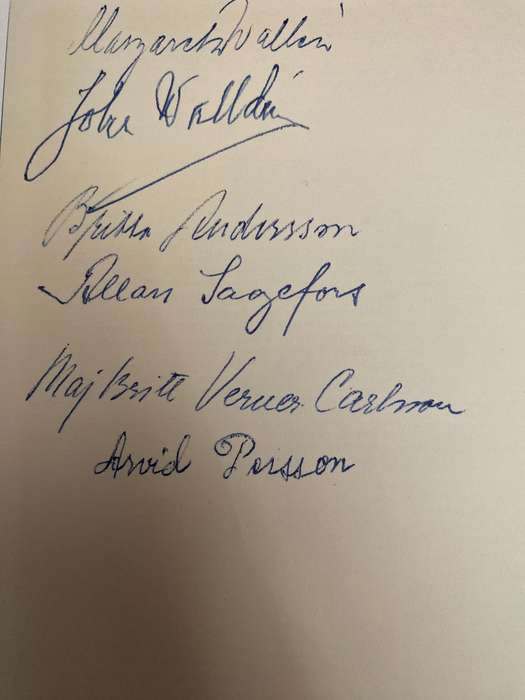 Margareta Walldén
John Walldén
Britta Andersson
Allan Sagefors
Maj Britt Verner Carlsson
Arvid Persson